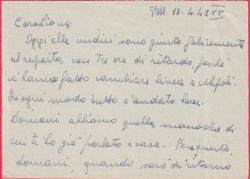 P.M. 11.4.42 XX
Cara Lina:
Oggi alle undici sono giunto felicemente
al reparto, con tre ore di ritardo, perché
ci hanno fatto cambiare linea a Napoli.
In ogni modo tutto è andato bene.
Domani abbiamo quella manovra di
cui ti ho già parlato a casa. Per questo
domani, quando sarò di ritorno